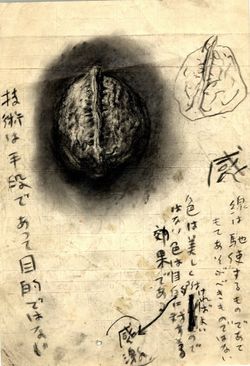 感
線は馳使するものであて
もてあそぶべきものではない
色は美しく
ければよい
ので
はない色は目
効果であ
感激
技術は手段であって目的ではない